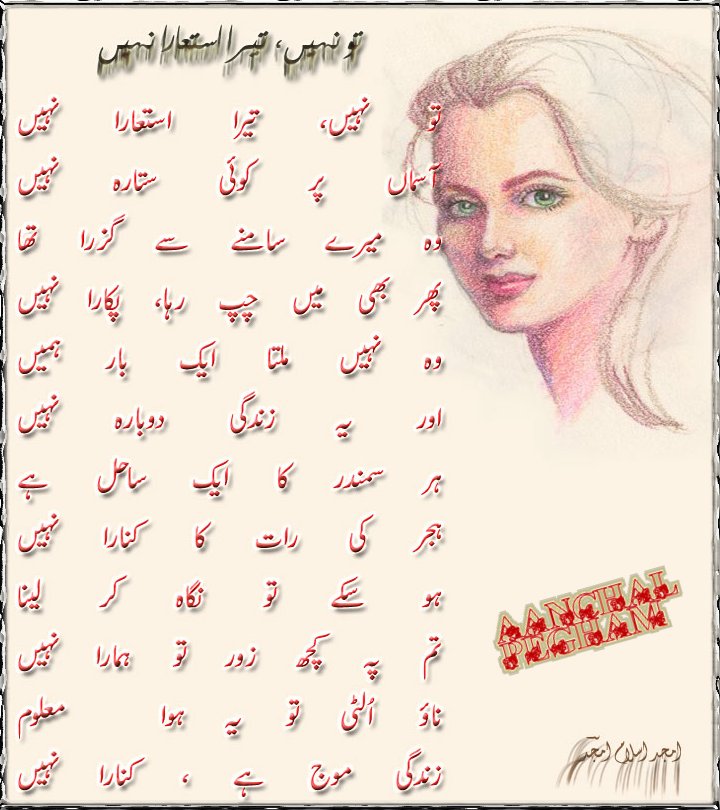 تو نہیں، تیرا استعارا نہیں
تو نہیں، تیرا استعارا نہیں
آسماں پر کوئی ستارہ نہیں
وہ میرے سامنے سے گزرا تھا
پھر بھی میں چپ رہا، پکارا نہیں
وہ نہیں ملتا ایک بار ہمیں
اور یہ زندگی دوبارہ نہیں
ہر سمندر کا ایک ساحل ہے
ہجر کی رات کا کنارا نہیں
ہو سکے تو نگاہ کر لینا
تم پہ کچھ زور تو ہمارا نہیں
ناؤ اُلٹی تو یہ ہوا معلوم
زندگی موج ہے ، کنارا نہیں
AANCHAL
PEGHAM
امجد اسلام امجد